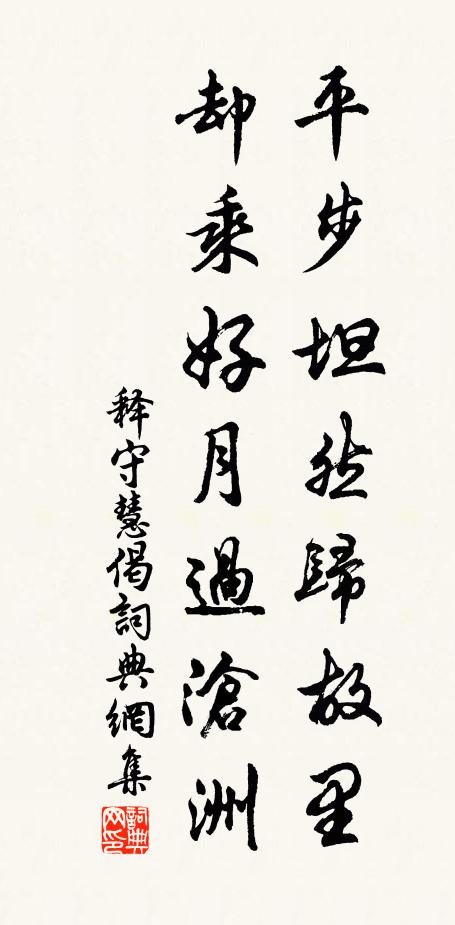 平步坦然歸故里
却乘好月過滄洲
释守慧偈詞典網集
詞典网印